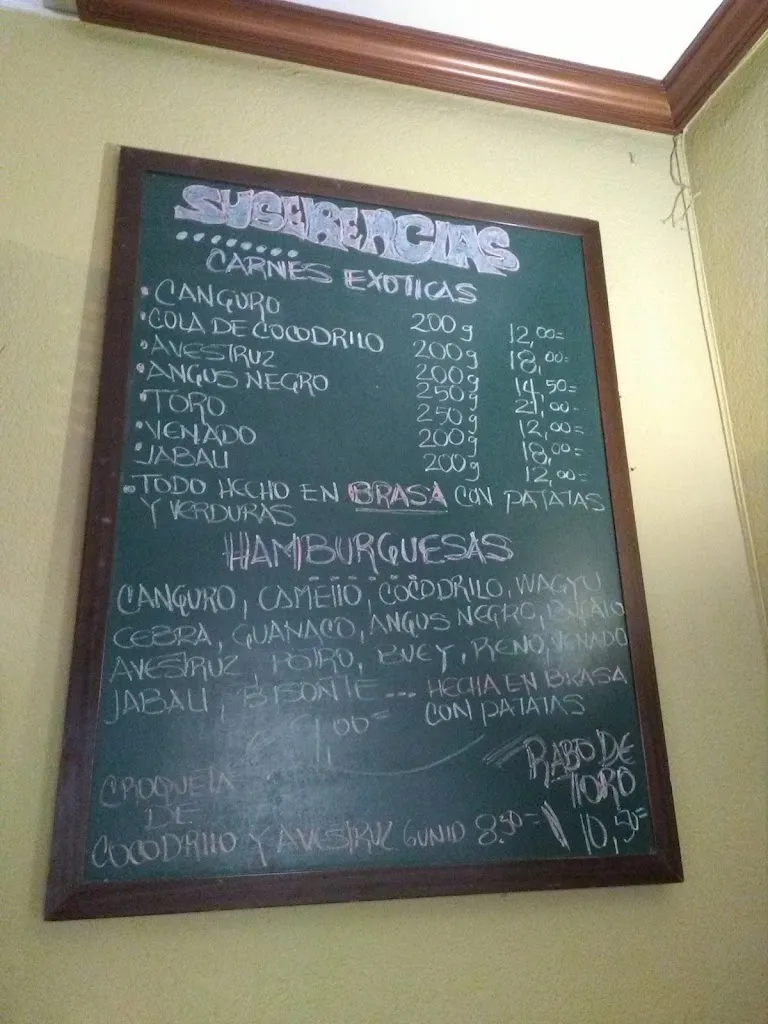 SUGERENCIAS
CARNES EXOTICAS
• CANGURO 200g 12,00=
• COLA DE COCODRILO 200g 18,00=
• AVESTRUZ 200g 14,50=
• ANGUS NEGRO 250g 21,00=
• TORO 250g 12,00=
• VENADO 200g 18,00=
• JABALI 200g 12,00=
• TODO HECHO EN BRASA CON PATATAS
Y VERDURAS
HAMBURGUESAS
CANGURO, CAMELLO, COCODRILO, WAGYU
CEBRA, GUANACO, ANGUS NEGRO, BUFALO
AVESTRUZ, POTRO, BUEY, RENO, VENADO
JABALI, BISONTE --- HECHA EN BRASA
CON PATATAS
9,00=
RABO DE
TORO
10,50=
CROQUETA
DE
COCODRILO Y AVESTRUZ 6UNID 8.50=